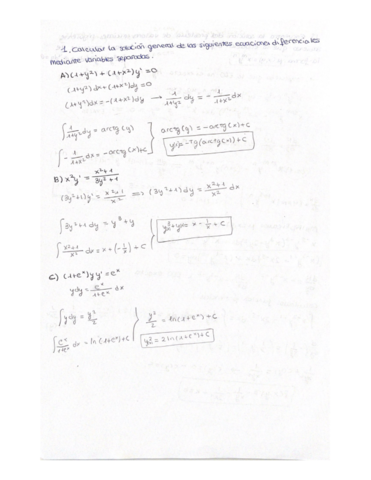 1. Calcular la solución general de las siguientes ecuaciones diferenciales
mediante variables separadas.
A) (1+y²) + (1+x²)y' = 0
(1+y²)dx + (1+x²)dy = 0
(1+y²)dx = -(1+x²)dy → 1/(1+y²) dy = - 1/(1+x²) dx
∫ 1/(1+y²) dy = arctg(y)
∫ - 1/(1+x²) dx = -arctg(x)+C
arctg(y) = -arctg(x)+C
y(x) = -Tg(arctg(x)+C)
B) x²y' = (x²+1)/(3y²+1)
(3y²+1)y' = (x²+1)/x² ⟹ (3y²+1)dy = (x²+1)/x² dx
∫ 3y²+1 dy = y³+y
∫ (x²+1)/x² dx = x+(-1/x)+C
y³+y = x - 1/x + C
C) (1+eˣ)y y' = eˣ
y dy = eˣ/(1+eˣ) dx
∫ y dy = y²/2
∫ eˣ/(1+eˣ) dx = ln(1+eˣ)+C
y²/2 = ln(1+eˣ)+C
y² = 2ln(1+eˣ)+C